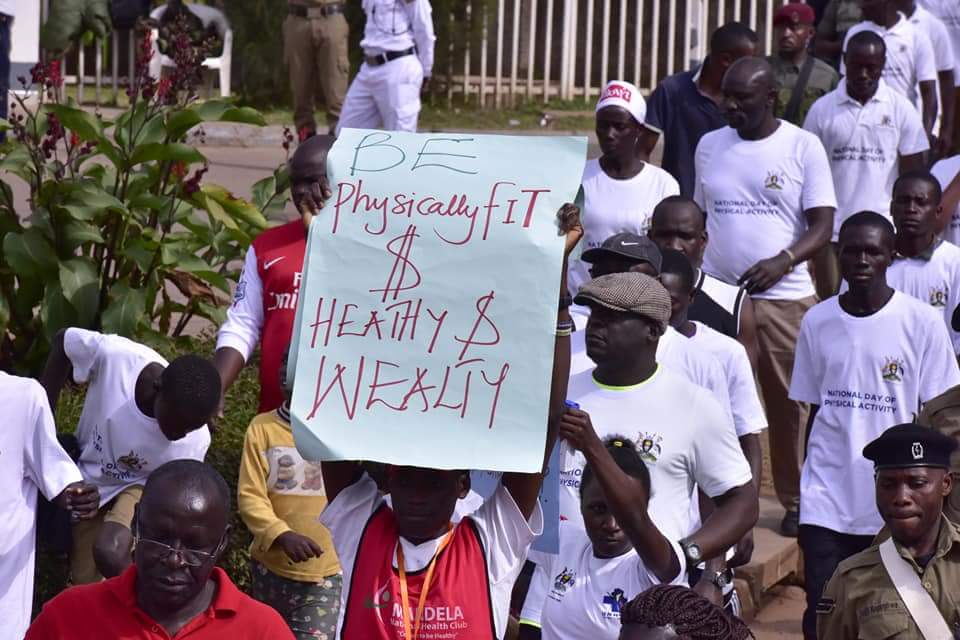 BE
Physically FIT
$
HEATHY $
WEALTY
NATIONAL DAY OF
PHYSICAL ACTIVITY
NATIONAL DAY OF
PHYSICAL ACTIVITY
PHYSICAL ACTIVITY
MANDELA
National Health Club